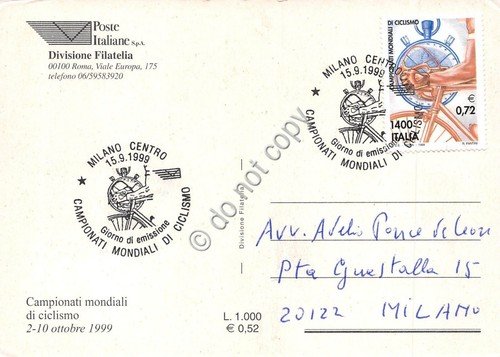 Poste
Italiane S.p.A.
Divisione Filatelia
00100 Roma, Viale Europa, 175
telefono 06/59583920
MILANO CENTRO
15.9.1999
Giorno di emissione
CAMPIONATI MONDIALI DI CICLISMO
MILANO CENTRO
15.9.1999
Giorno di emissione
CAMPIONATI MONDIALI DI CICLISMO
CAMPIONATI MONDIALI DI CICLISMO
€
0,72
1400
ITALIA
do not copy
Divisione Filatelia
Avv. Adelio Ponce de Leon
Pta Guastalla 15
20122 MILANO
Campionati mondiali
di ciclismo
2-10 ottobre 1999
L. 1.000
€ 0,52